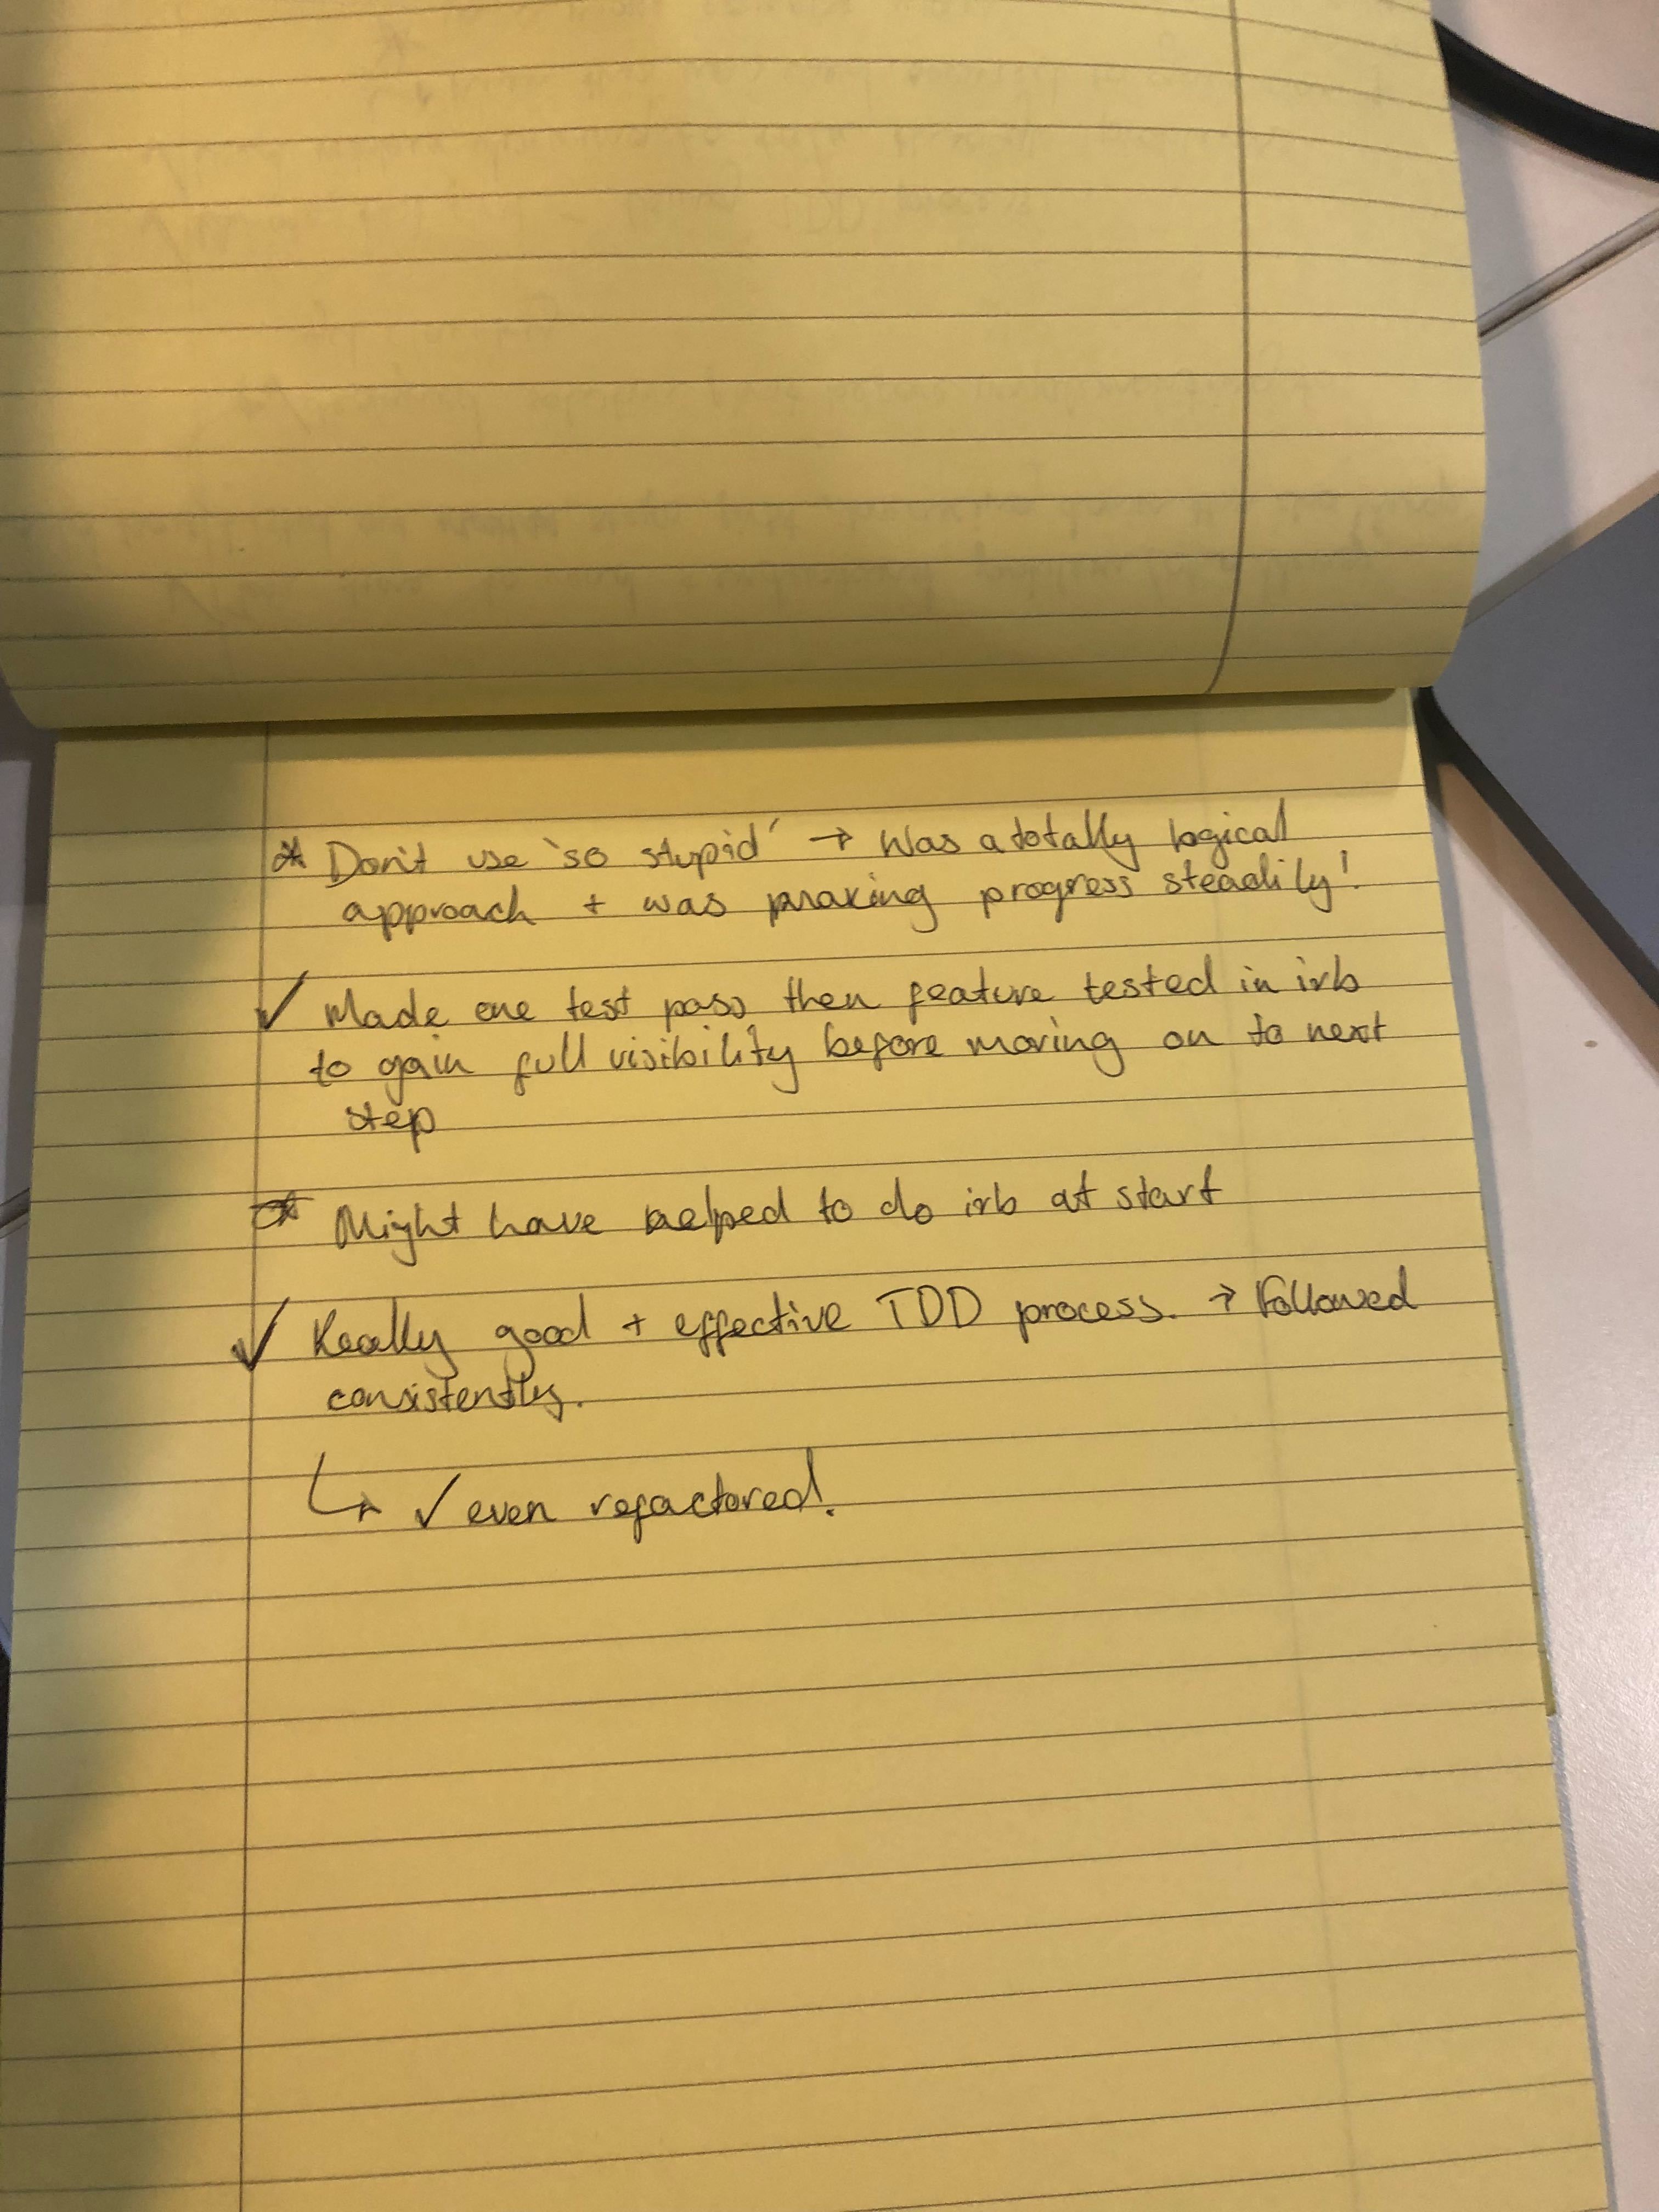 * Don't use 'so stupid' → Was a totally logical
approach + was making progress steadily!
✓ Made one test pass then feature tested in irb
to gain full visibility before moving on to next
step
* Might have helped to do irb at start
✓ Really good + effective TDD process. → Followed
consistently.
↳ ✓ even refactored!